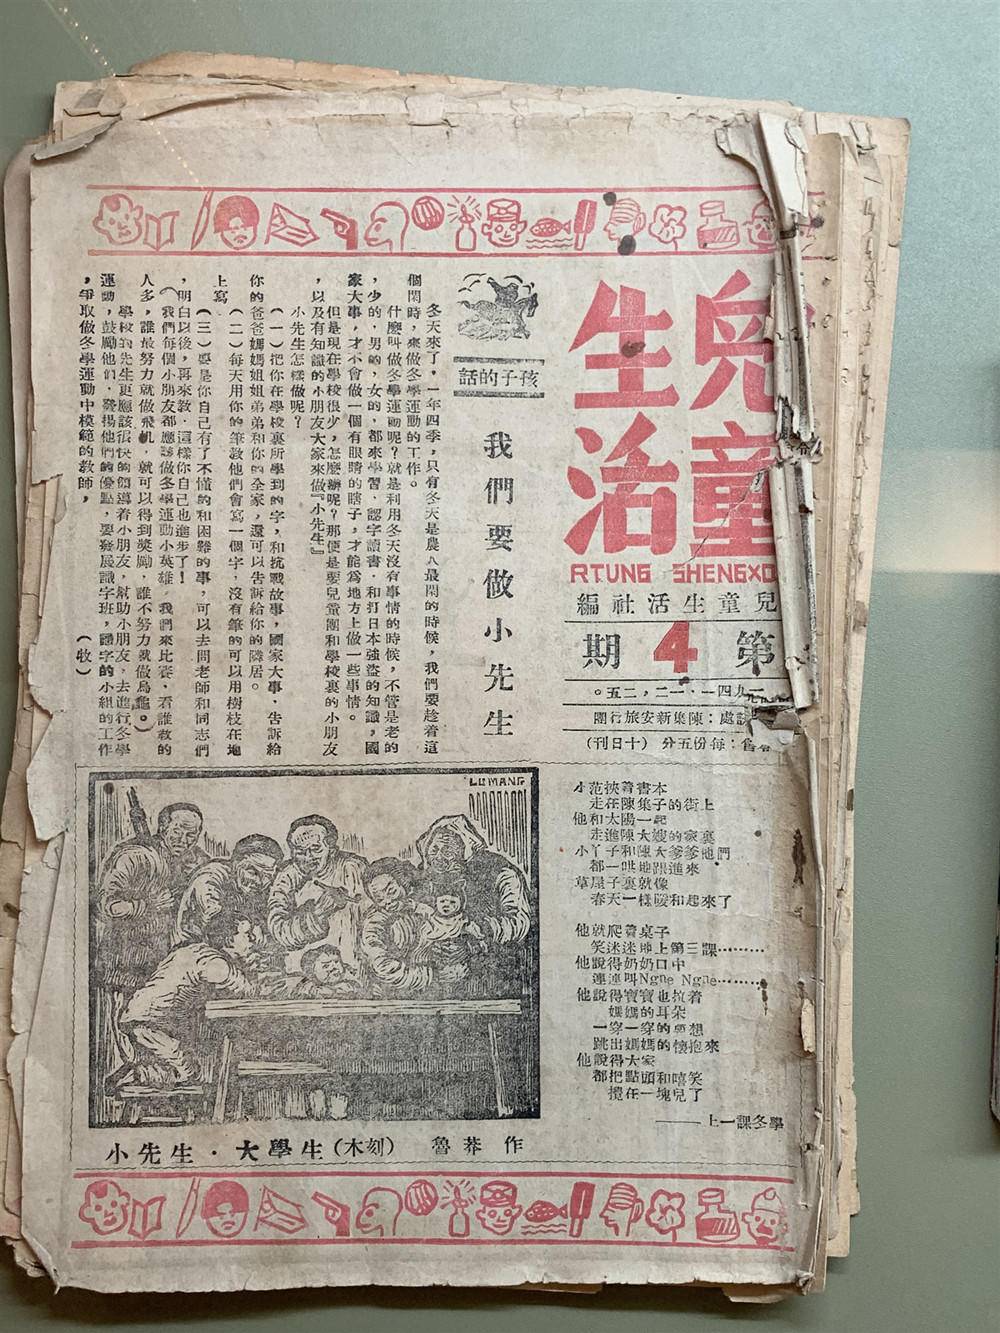 兒童
生活
RTUNG SHENGXO
兒童生活社編
第4期
一九四一．一二，二五。
處：陳集新安旅行團
售：每份五分 （十日刊）
孩子的話
我們要做小先生
冬天來了，一年四季，只有冬天是農人最閑的時候，我們要趁着這
個閑時，來做冬學運動的工作。
什麼叫做冬學運動呢？就是利用冬天沒有事情的時候，不管是老的
，少的，男的，女的，都來學習，認字讀書，和打日本強盜的知識，國
家大事，才不會做一個有眼睛的瞎子，才能為地方上做一些事情。
但是現在學校很少，怎麼辦呢？那便是要兒童團和學校裏的小朋友
，以及有知識的小朋友大家來做『小先生』
小先生怎樣做呢？
（一）把你在學校裏所學到的字，和抗戰故事，國家大事，告訴給
你的爸爸媽媽姐姐弟弟和你的全家，還可以告訴給你的隣居。
（二）每天用你的筆教他們會寫一個字，沒有筆的可以用樹枝在地
上寫
（三）要是你自己有了不懂的和困難的事，可以去問老師和同志們
，明白以後，再來教，這樣你自己也進步了！
（我們每個小朋友都應該做冬學運動小英雄，我們來比賽，看誰教的
人多，誰最努力就做飛机，就可以得到獎勵，誰不努力就做烏龜。）
學校的先生更應該很快的領導着小朋友，幫助小朋友，去進行冬學
運動，鼓勵他們，發揚他們的優點，要發展識字班，識字的小組的工作
，爭取做冬學運動中模範的教師，
（牧）
LUMANG
小先生．大學生（木刻） 魯莽作
小范挾着書本
走在陳集子的街上
他和太陽一起
走進陳大嫂的家裏
小丫子和陳大爹爹他們
都一哄地跟進來
草屋子裏就像
春天一樣暖和起來了
他就爬着桌子
笑迷迷地上第三課………
他說得奶奶口中
連連叫Ngne Ngne………
他說得寶寶也拉着
媽媽的耳朵
一穿一穿的要想
跳出媽媽的懷抱來
他說得大家
都把點頭和嘻笑
攪在一塊兒了
——上一課冬學